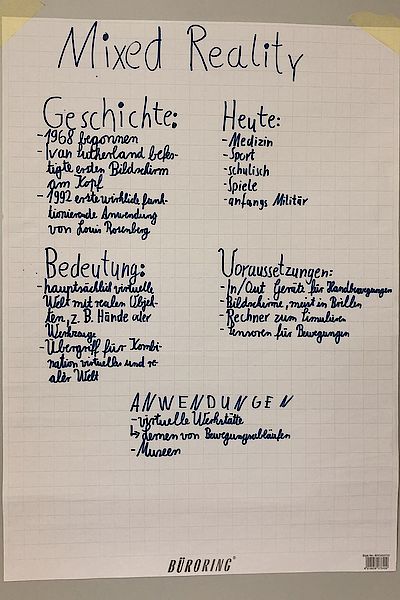 Mixed Reality
Geschichte:
- 1968 begonnen
- Ivan Sutherland befes-
tigte ersten Bildschirm
am Kopf
- 1992 erste wirklich funk-
tionierende Anwendung
von Louis Rosenberg
Heute:
- Medizin
- Sport
- schulisch
- Spiele
- anfangs Militär
Bedeutung:
- hauptsächlich virtuelle
Welt mit realen Objek-
ten, z. B. Hände oder
Werkzeuge
- Übergriff für Kombi-
nation virtueller und re-
aler Welt
Voraussetzungen:
- In/Out Geräte für Handbewegungen
- Bildschirme, meist in Brillen
- Rechner zum Simulieren
- Sensoren für Bewegungen
ANWENDUNGEN
- virtuelle Werkstätte
↳ lernen von Bewegungsabläufen
- Museen
BÜRORING®